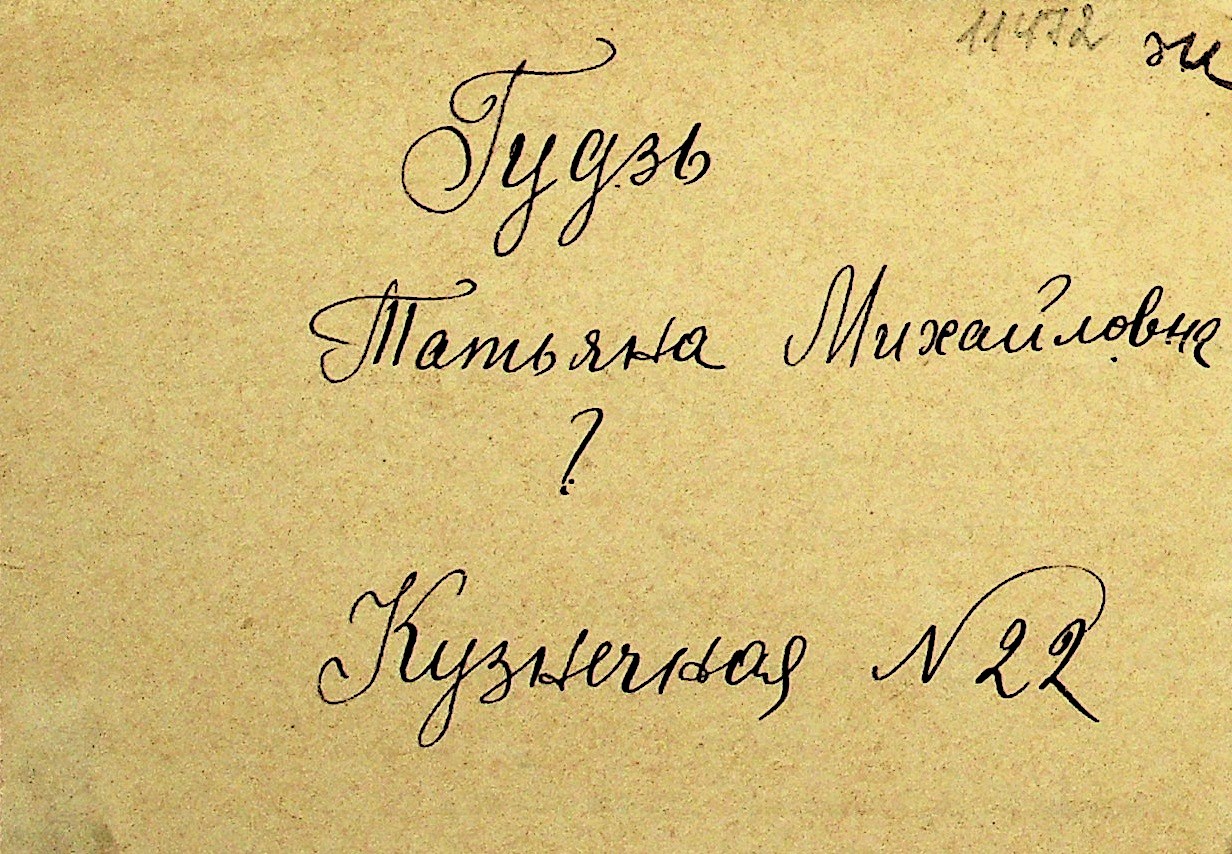 11472
Гудзь
Татьяна Михайловна
?
Кузнечная N 22